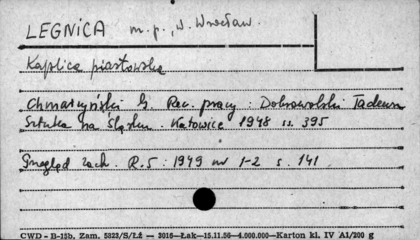 LEGNICA m.p., W. Wrocław.
Kaplica piastowska
Chmarzyński G. Rec. pracy: Dobrowolski Tadeusz
Sztuka na Śląsku. Katowice 1948 ss. 395
Przegląd zach. R.5: 1949 nr 1-2 s. 141
CWD - B-15b. Zam. 5823/S/Łż — 3016—Łak—15.11.56—4.000.000—Karton kl. IV A1/200 g